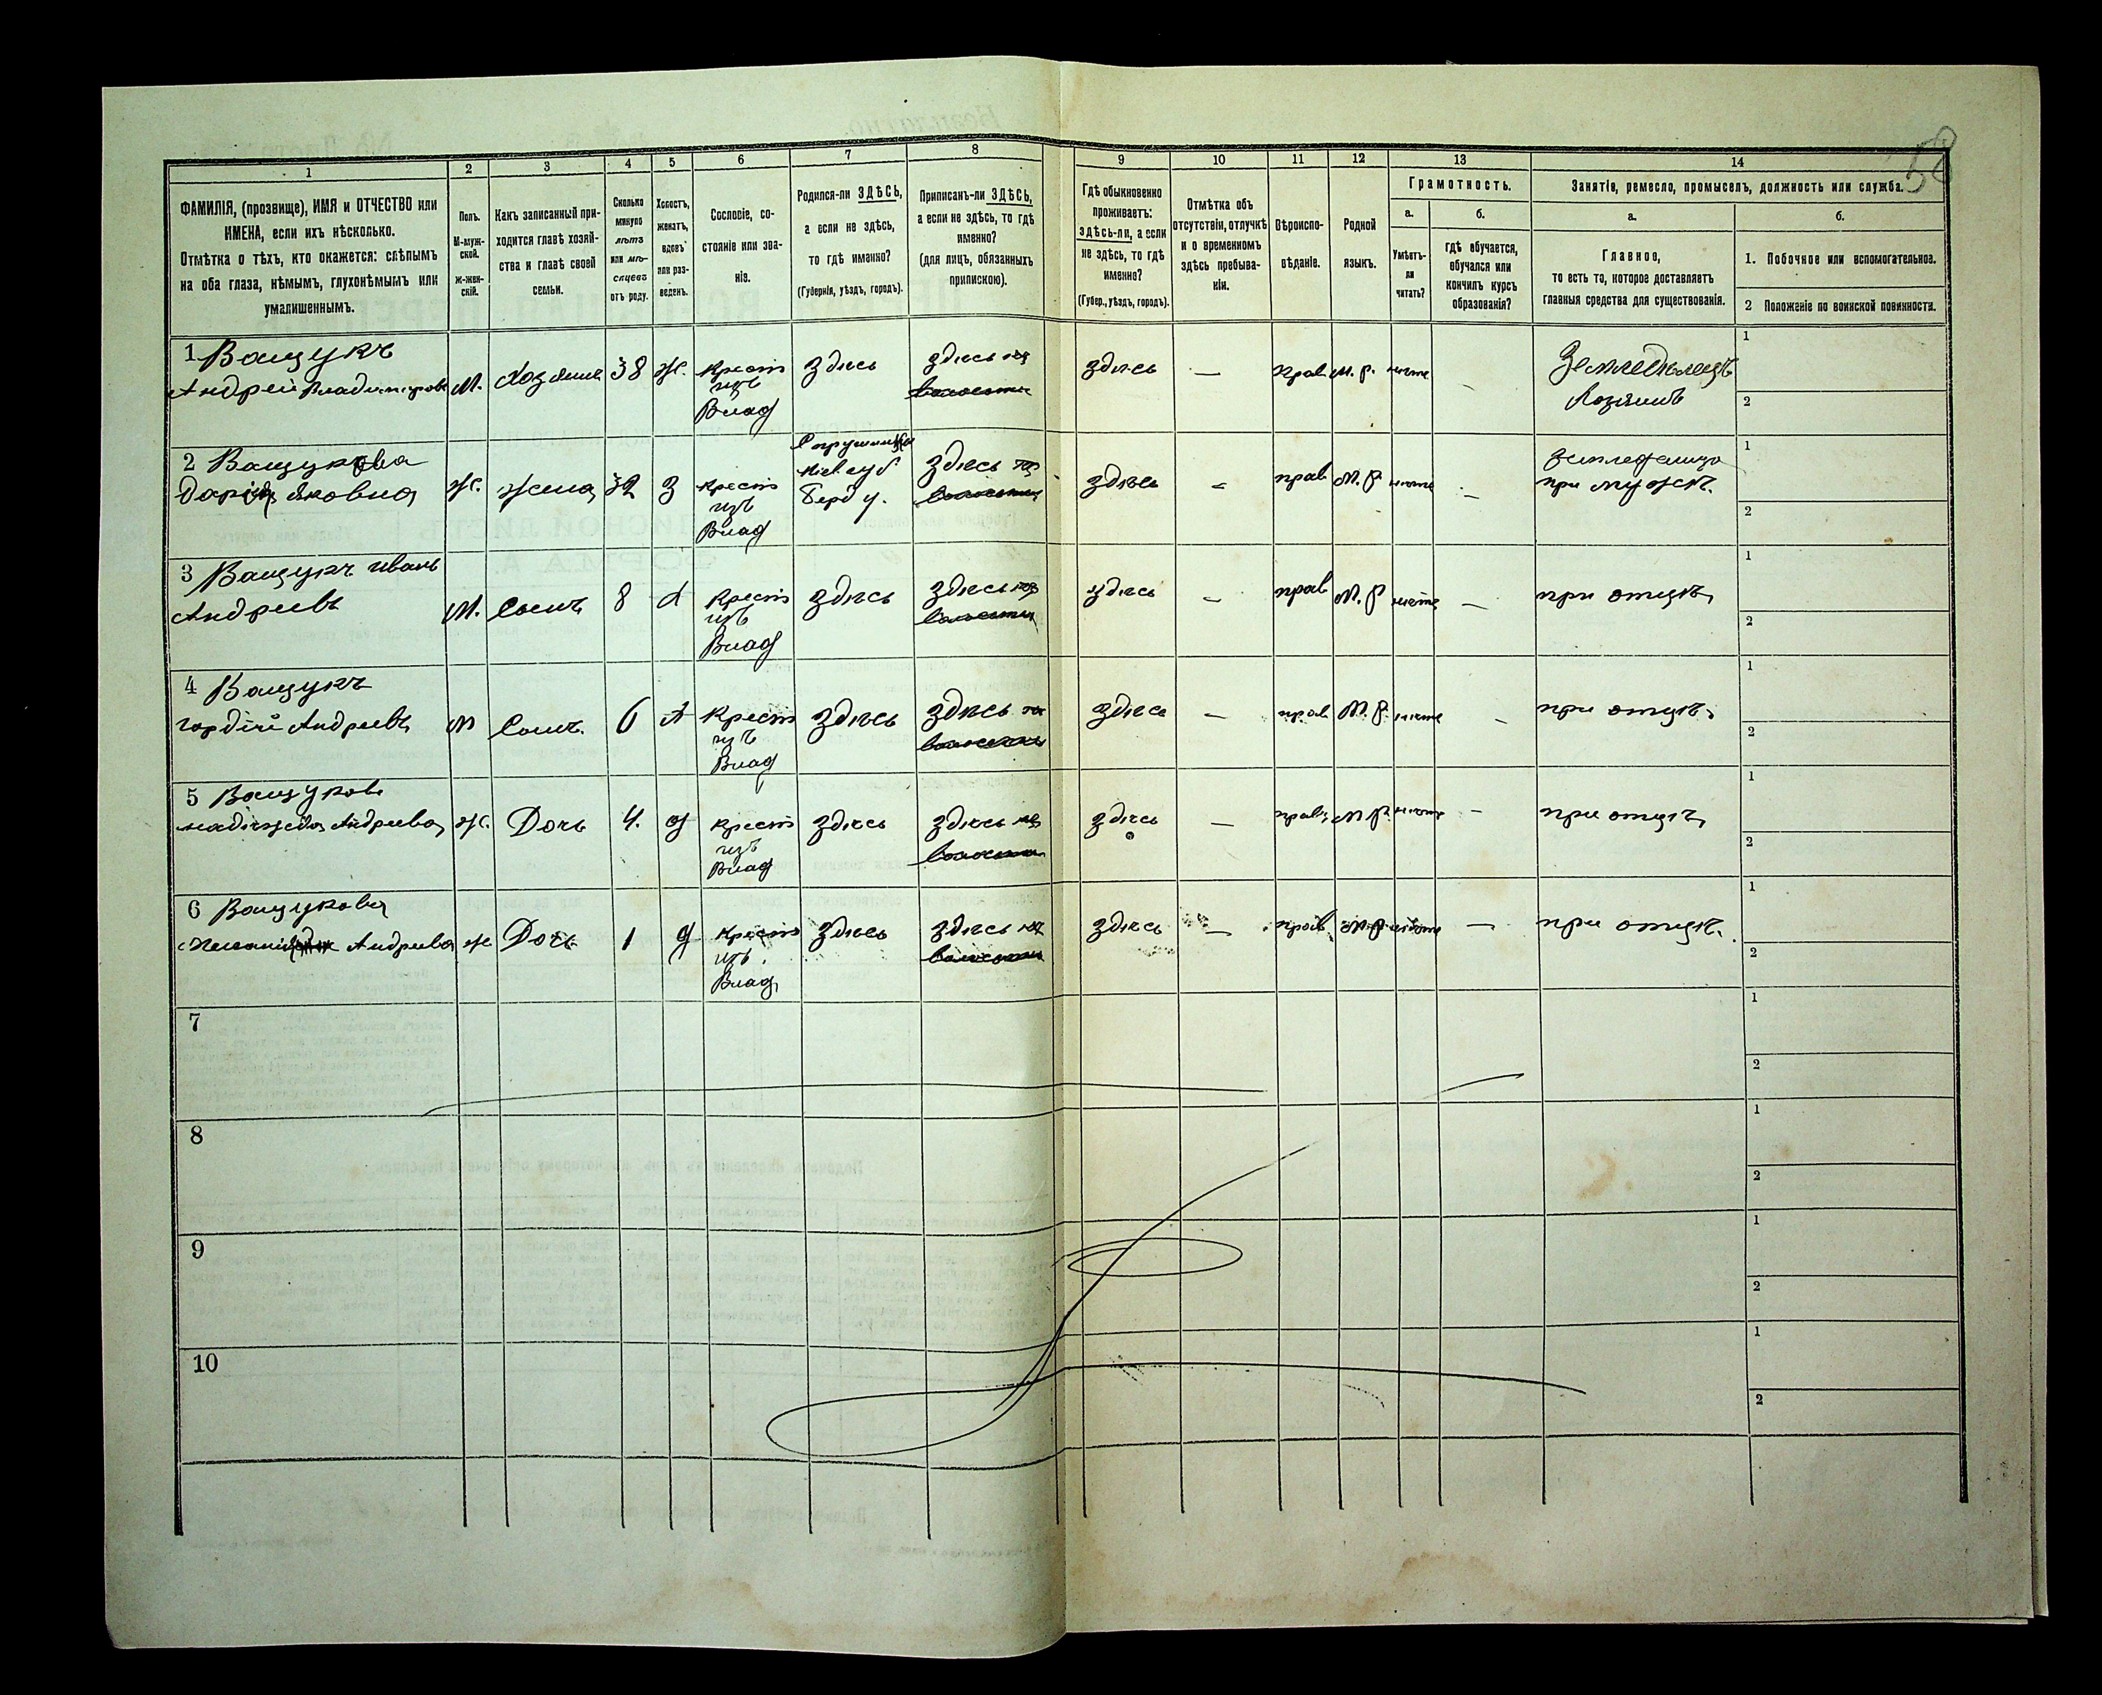 58
1
2
3
4
5
6
7
8
9
10
11
12
13
14
ФАМИЛІЯ, (прозвище), ИМЯ и ОТЧЕСТВО или
ИМЕНА, если ихъ нѣсколько.
Отмѣтка о тѣхъ, кто окажется: слѣпымъ
на оба глаза, нѣмымъ, глухонѣмымъ или
умалишеннымъ.
Полъ.
М-муж-
ской.
Ж-жен-
скій.
Какъ записанный при-
ходится главѣ хозяй-
ства и главѣ своей
семьи.
Сколько
минуло
лѣтъ
или мѣ-
сяцевъ
отъ роду.
Холостъ,
женатъ,
вдовъ
или раз-
веденъ.
Сословіе, со-
стояніе или зва-
ніе.
Родился-ли ЗДѢСЬ,
а если не здѣсь,
то гдѣ именно?
(Губернія, уѣздъ, городъ).
Приписанъ-ли ЗДѢСЬ,
а если не здѣсь, то гдѣ
именно?
(для лицъ, обязанныхъ
припискою).
Гдѣ обыкновенно
проживаетъ:
здѣсь-ли, а если
не здѣсь, то гдѣ
именно?
(Губер., уѣздъ, городъ).
Отмѣтка объ
отсутствіи, отлучкѣ
и о временномъ
здѣсь пребыва-
ніи.
Вѣроиспо-
вѣданіе.
Родной
языкъ.
Грамотность.
а.
б.
Умѣетъ-
ли
читать?
гдѣ обучается,
обучался или
кончилъ курсъ
образованія?
Занятіе, ремесло, промыселъ, должность или служба.
а.
б.
Главное,
то есть то, которое доставляетъ
главныя средства для существованія.
1. Побочное или вспомогательное.
2 Положеніе по воинской повинности.
1 Ващукъ
Андрей Владиміровъ М. Хозяинъ 38 ж. Крест изъ Влад здѣсь здѣсь здѣсь — прав М. р. нѣтъ — Земледѣлецъ
Хозяинъ
1
2
2 Ващукова
Дарія Яковна ж. жена 32 З Крест изъ Влад Кіев губ Берд у. здѣсь здѣсь — прав М. р. нѣтъ —
при мужѣ.
1
2
3 Ващукъ Иванъ
Андреевъ М. Сынъ 8 Х Крест изъ Влад здѣсь здѣсь здѣсь — прав М. р нѣтъ — при отцѣ,
1
2
4 Ващукъ
Гордій Андреевъ М Сынъ. 6 Х Крест изъ Влад здѣсь здѣсь здѣсь — прав М. р. нѣтъ — при отцѣ.
1
2
5 Ващукова
Надежда Андреева ж. Дочь 4. Д Крест изъ Влад здѣсь здѣсь здѣсь — прав. М. р. нѣтъ — при отцѣ,
1
2
6 Ващукова
Андреева ж Дочь 1 Д Крест изъ Влад здѣсь здѣсь здѣсь — прав М. р нѣтъ — при отцѣ.
1
2
7
1
2
8
1
2
9
1
2
10
1
2